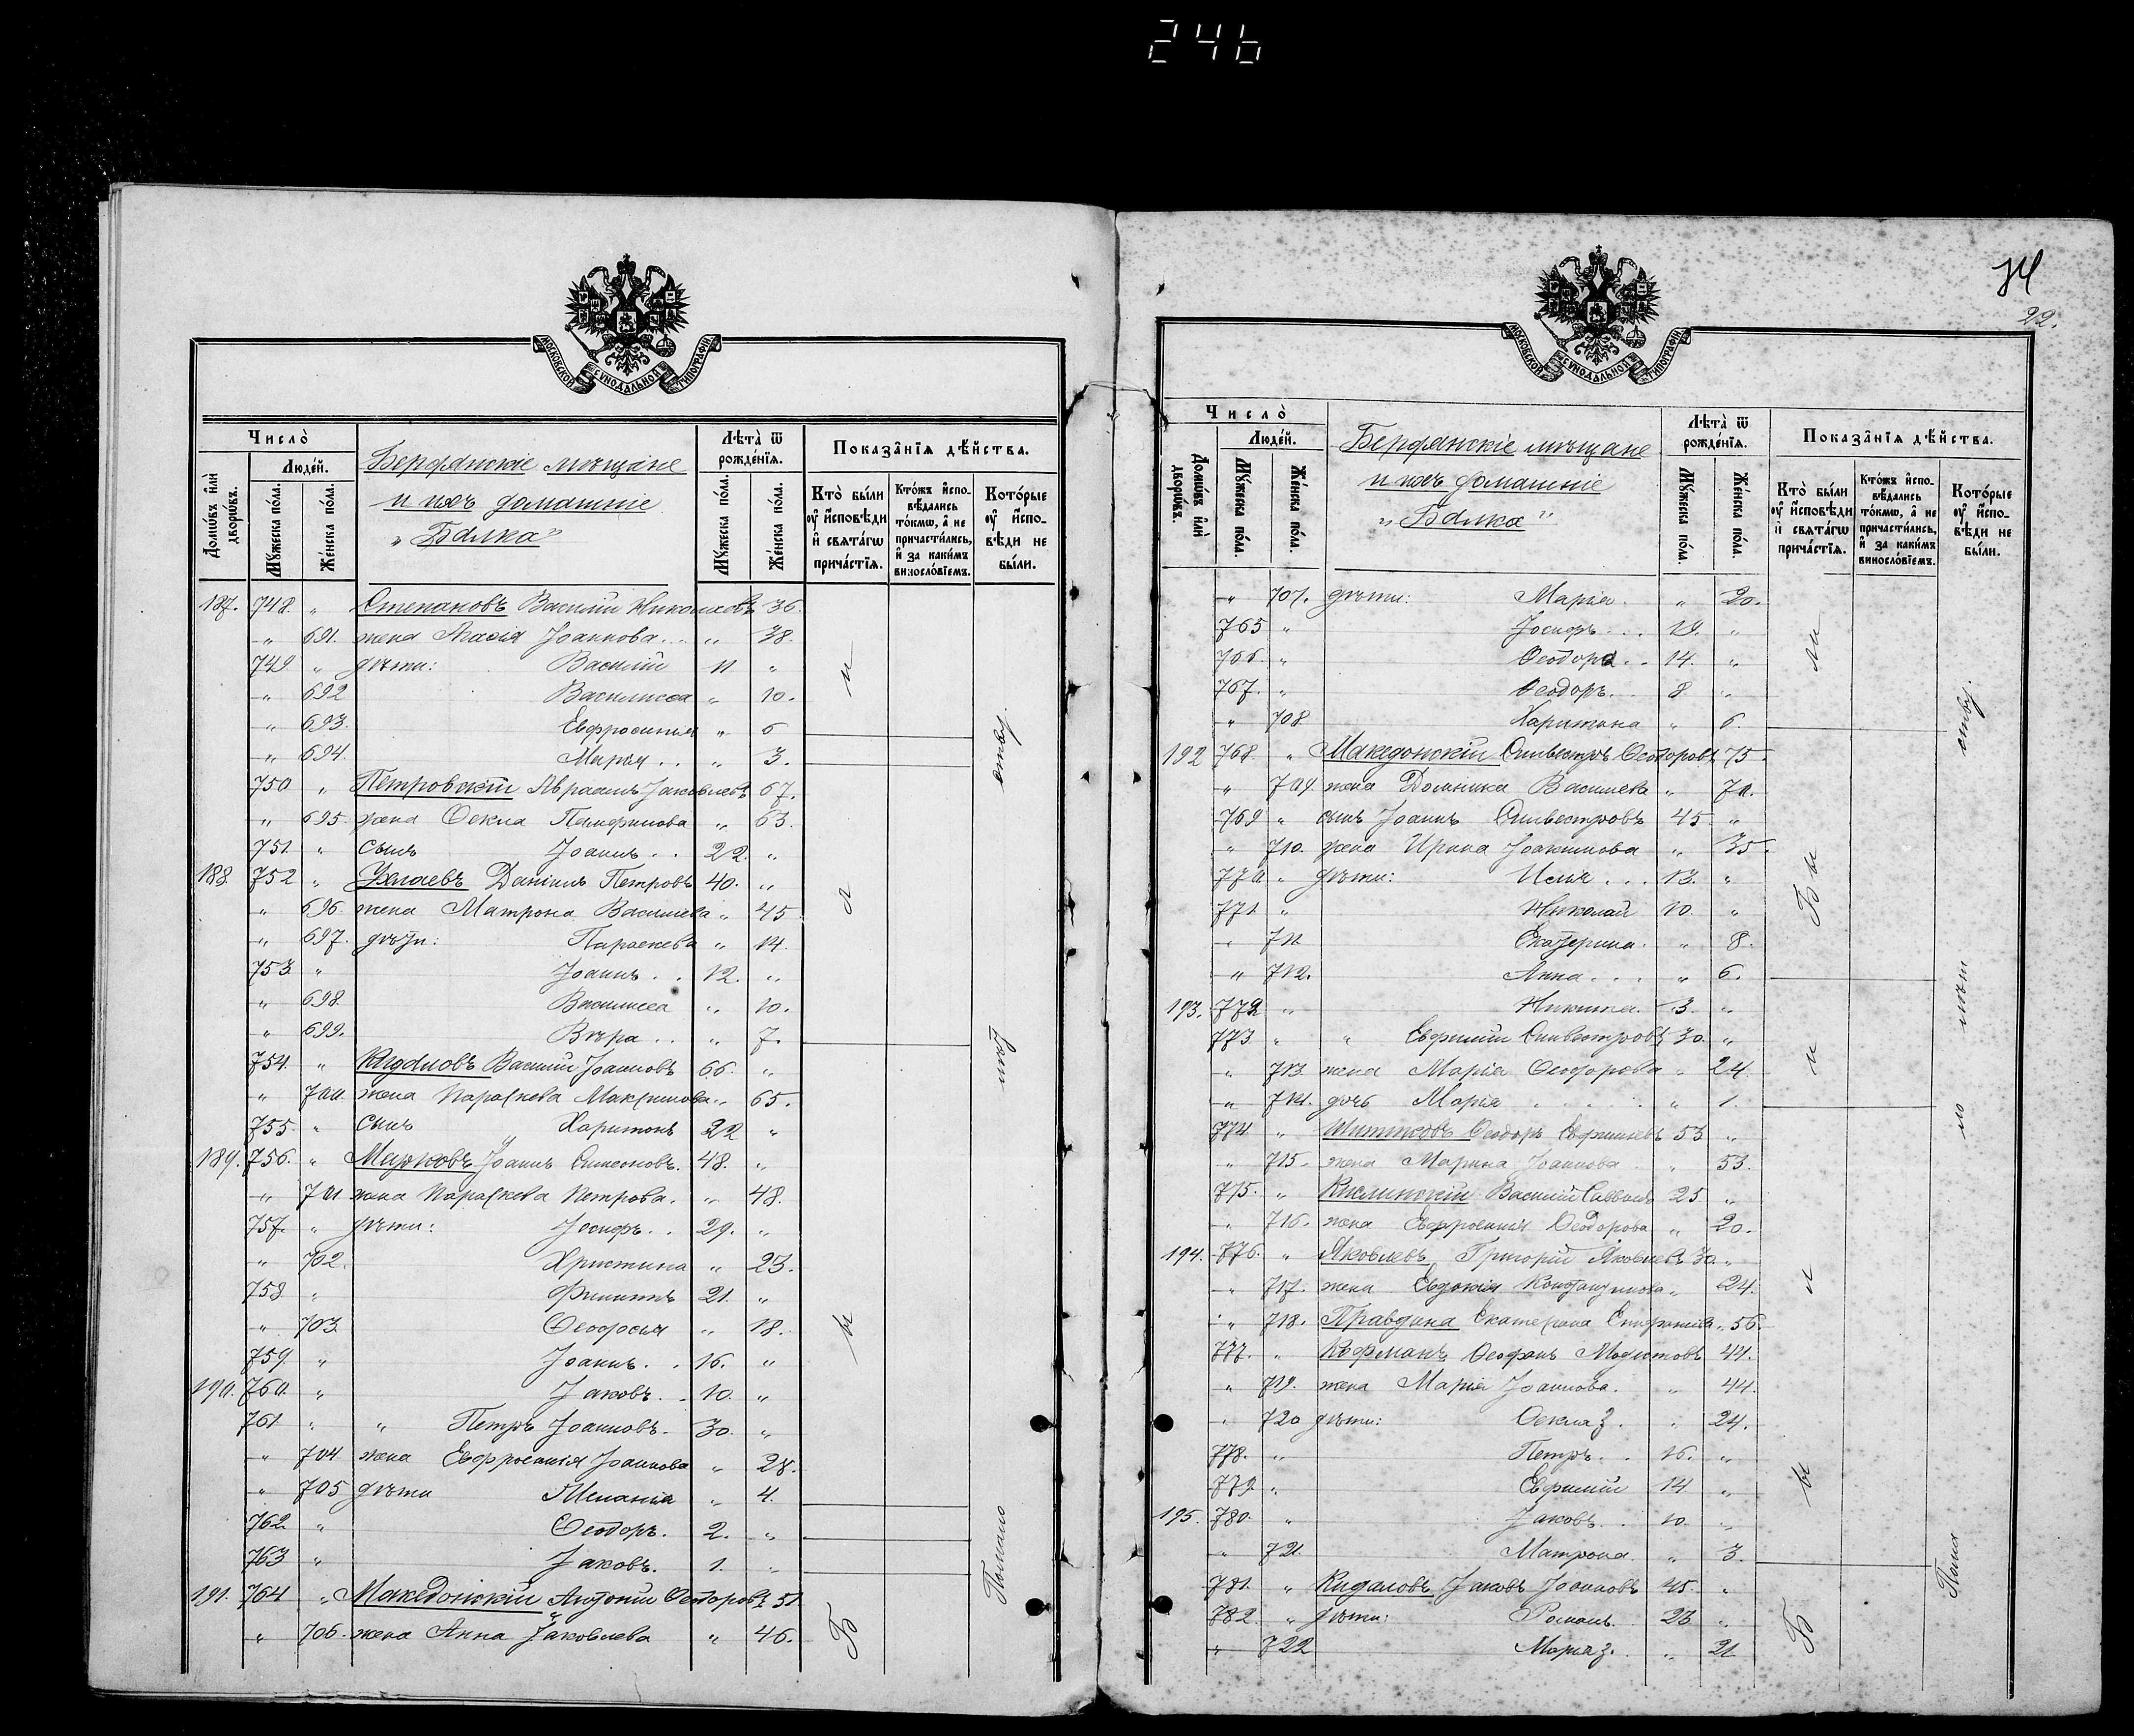 246
МОСКОВСКОЙ СУНОДАЛЬНОЙ ТИПОГРАФІИ
Число̀
Люде́й.
Домѡ́въ и҆лѝ дворѡ́въ.
Мꙋ́жеска по́ла.
Же́нска по́ла.
Бердянскіе мѣщане
и ихъ домашніе
„Балка"
Лѣта̀ ѿ рожде́нїѧ.
Мꙋ́жеска по́ла.
Же́нска по́ла.
Показа̑нїѧ дѣ́йства.
Кто̀ бы́ли ᲂу҆ и҆сповѣ́ди и҆ свѧта́гѡ прича́стїѧ.
Кто́жъ и҆сповѣ́дались то́кмѡ, а҆ не причасти́лись, и҆ за каки́мъ виносло́вїемъ.
Кото́рые ᲂу҆ и҆сповѣ́ди не бы́ли.
187. 748. „ Степановъ Василій Николаевъ 36.
„ 691. жена Агафія Іоаннова . . „ 38.
749 „ дѣти: Василій 11 „
„ 692 Василисса „ 10.
„ 693. Евфросинія „ 6
„ 694. Марія . . „ 3.
750 „ Петровскій Авраамъ Іаковлевъ 67.
„ 695. жена Ѳекла Памфилова „ 63.
751. „ сынъ Іоаннъ . . 22. „
188. 752 „ Даніилъ Петровъ 40. „
„ 696. жена Матрона Василіева „ 45
„ 697. дѣти: Параскева „ 14.
753. „ Іоаннъ . . 12. „
„ 698. Василисса „ 10.
„ 699. Вѣра . . „ 7.
754. „ Кидаловъ Василій Іоанновъ 66. „
„ 700. жена Параскева Максимова „ 65.
755. „ сынъ Харитонъ 22 „
189. 756. „ Марковъ Іоаннъ Симеоновъ. 48. „
„ 701 жена Параскева Петрова. „ 48.
757. „ дѣти: Іосифъ . . 29. „
„ 702. Христина „ 23.
758 „ Филиппъ 21. „
„ 703. Ѳеодосія „ 18.
759. „ Іоаннъ . . 16. „
190. 760. „ Іаковъ . . 10. „
761 „ „ Петръ Іоанновъ. 30. „
„ 704 жена Евфросинія Іоаннова „ 28.
„ 705 дѣти Меланія „ 4.
762. „ Ѳеодоръ. 2. „
763 „ Іаковъ. 1. „
191. 764 „ Македонскій Антоній Ѳеодоровъ 51
„ 706. жена Анна Іаковлева „ 46.
Б ы л и
74
22.
МОСКОВСКОЙ СУНОДАЛЬНОЙ ТИПОГРАФІИ
Число̀
Люде́й.
Домѡ́въ и҆лѝ дворѡ́въ.
Мꙋ́жеска по́ла.
Же́нска по́ла.
Бердянскіе мѣщане
и ихъ домашніе
„Балка"
Лѣта̀ ѿ рожде́нїѧ.
Мꙋ́жеска по́ла.
Же́нска по́ла.
Показа̑нїѧ дѣ́йства.
Кто̀ бы́ли ᲂу҆ и҆сповѣ́ди и҆ свѧта́гѡ прича́стїѧ.
Кто́жъ и҆сповѣ́дались то́кмѡ, а҆ не причасти́лись, и҆ за каки́мъ виносло́вїемъ.
Кото́рые ᲂу҆ и҆сповѣ́ди не бы́ли.
„ 707. дѣти: Марія. „ 20.
765 „ Іосифъ . . . 19. „
766. „ Ѳеодоръ . . 14. „
767. „ Ѳеодоръ. 8. „
„ 708 Харитина „ 6.
192 768. „ Македонскій Сильвестръ Ѳеодоровъ 75.
„ 709. жена Домника Василіева „ 70.
769 „ сынъ Іоаннъ Сильвестровъ 45. „
„ 710. жена Ирина Іоакимова „ 35.
770 „ дѣти: Илія . . . 13. „
771 „ Николай 10. „
„ 711 Екатерина. „ 8.
„ 712. Анна . . . „ 6.
193. 772 „ Никита. 3. „
773 „ „ Евфимій Сильвестровъ 30. „
„ 713. жена Марія Ѳеодорова „ 24.
„ 714. дочь Марія . . . . „ 1.
774 „ Шитиковъ Ѳеодоръ Евфиміевъ 53 „
„ 715. жена Марина Іоаннова „ 53.
775. „ Василій Саввовъ 25 „
„ 716. жена Евфросинія Ѳеодорова „ 20.
194. 776. „ Яковлевъ Григорій Яковлевъ 30. „
„ 717. жена Евдокія Константинова „ 24.
„ 718. Правдина Екатерина „ 56.
777. „ Ѳеофанъ 44.
„ 719. жена Марія Іоаннова. „ 44.
„ 720 дѣти: Ѳекла „ 24.
778. „ Петръ . . 16. „
779 „ Евфимій 14 „
195. 780. „ Іаковъ . . 10. „
„ 721. Матрона. „ 3.
781. „ Кидаловъ Іаковъ Іоанновъ 45. „
782. „ дѣти: Романъ. 23 „
„ 722 Марія „ 21
Б ы л и
Б ы л и